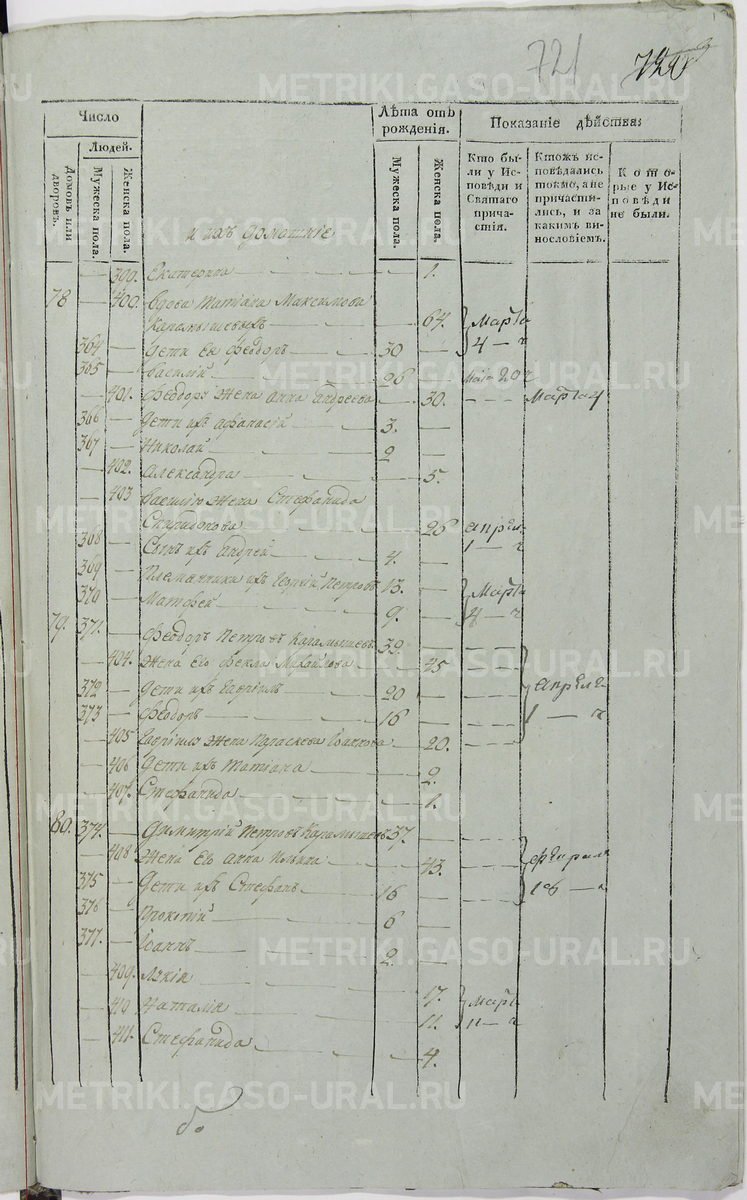 721
Число
Людей.
Домовъ или дворовъ.
Мужеска пола.
Женска пола.
Лѣта отъ рожденія.
Мужеска пола.
Женска пола.
Показаніе дѣйства:
Кто бы-
ли у Ис-
повѣди и
Святаго
прича-
стія.
Ктожъ ис-
повѣдались
токмо, а не
причасти-
лись, и за
какимъ ви-
нословіемъ.
Кото-
рые у Ис-
повѣди
не были.
и ихъ домашніе
399. Екатерина 1.
78 400. вдова Татіана Максимова
Карамышевыхъ 64. Марта
364 дети Ея Феодоръ 30 4 ч
365 Василій 26 Марта 20 ч
401. Феодора жена Анна Андреева 30. Марта 4
366 дети ихъ Афанасій 3.
367 Николай 2
402. Александра 5.
403 Василія жена Стефанида
Спиридонова 26 апреля
368 Сынъ ихъ Андрей 4. 1 ч
369 Племянники ихъ Георгій Петровъ 13. Марта
370 Матфей 9. 4 ч
79. 371. Феодоръ Петровъ Карамышевъ 39.
404. Жена Его Фекла Михайлова 45
372 дети ихъ Гавріилъ 20 Апреля
373 Феодоръ 16 1 ч
405 Гавріила жена Параскева Іоаннова 20.
406 дети ихъ Татіана 2.
407. Стефанида 1.
80. 374. Димитрій Петровъ Карамышевъ 37.
408 Жена Его Анна 43. февраля
375 дети ихъ Стефанъ 16
376 Прокопій 6
377. Іоаннъ 2
409. Лукія 17. Марта
410 Наталія 11. 11 ч
411. Стефанида 4.
METRIKI.GASO-URAL.RU